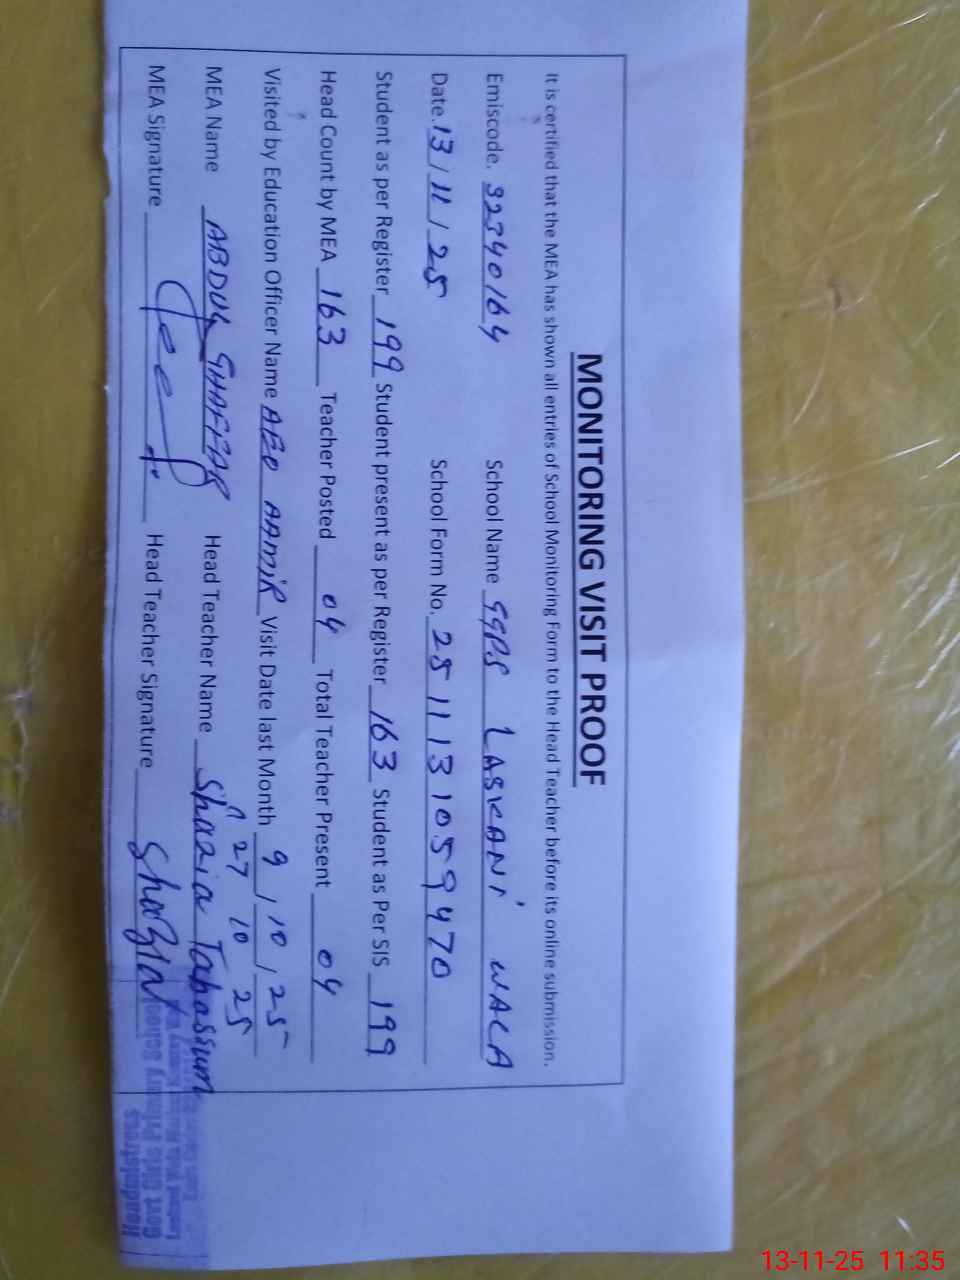 MONITORING VISIT PROOF
It is certified that the MEA has shown all entries of School Monitoring Form to the Head Teacher before its online submission.
Emiscode. 32340164 School Name GGPS LASKANI WALA
Date. 13/11/25 School Form No. 2511131059470
Student as per Register 199 Student present as per Register 163 Student as Per SIS 199
Head Count by MEA 163 Teacher Posted 04 Total Teacher Present 04
Visited by Education Officer Name AEO AAMIR Visit Date last Month 9/10/25
27 10 25
MEA Name ABDUL GHAFFAR Head Teacher Name Shazia Tabassum
MEA Signature Head Teacher Signature Shazia
Headmistress
Govt Girls Primary School
13-11-25 11:35